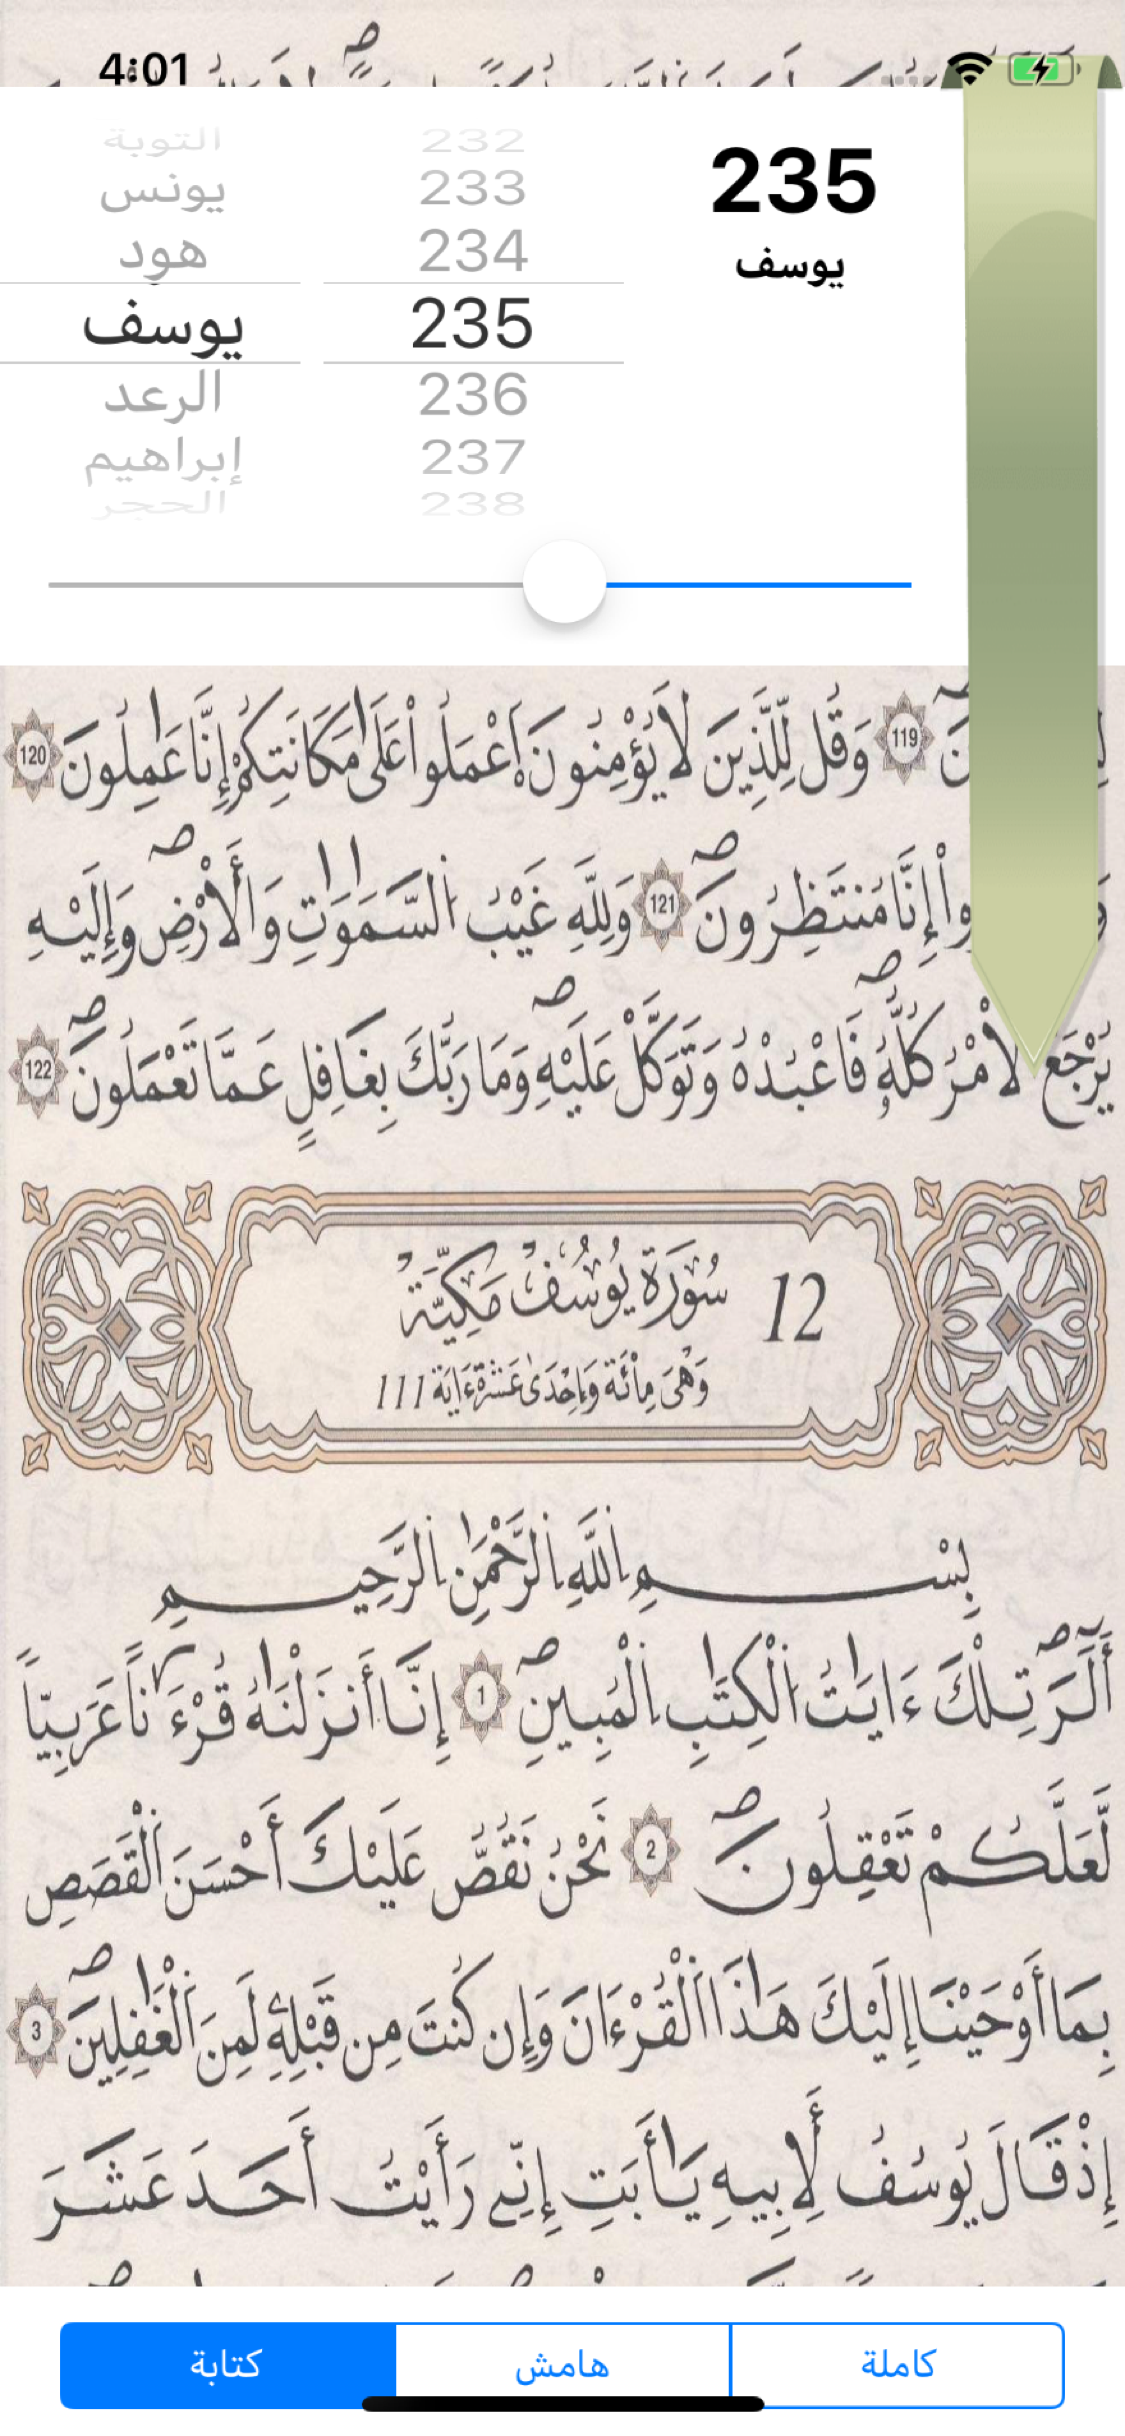 4:01
التوبة
232
يونس
233
235
هود
234
يوسف
يوسف
235
الرعد
236
إبراهيم
237
الحجر
238
119 وَقُل لِّلَّذِينَ لَا يُؤْمِنُونَ اَعْمَلُواْ عَلَىٰ مَكَانَتِكُمْ إِنَّا عَٰمِلُونَ 120
إِنَّا مُنتَظِرُونَ 121 وَلِلهِ غَيْبُ اُلسَّمَٰوَٰتِ وَالَارْضِ وَإِلَيْهِ
يُرْجَعُ الَامْرُ كُلُّهُۥ فَاعْبُدْهُ وَتَوَكَّلْ عَلَيْهِ وَمَا رَبُّكَ بِغَٰفِلٍ عَمَّا تَعْمَلُونَ 122
12 سُورَةُ يُوسُفَ مَكِيَّةٌ
وَهْىَ مِاْئَةٌ وَإِحْدَىٰ عَشْرَةَ ءَايَةً 111
بِسْمِ اِللَّهِ اِلرَّحْمَٰنِ اِلرَّحِيمِ
أَلَٓر تِلْكَ ءَايَٰتُ اُلْكِتَٰبِ اِلْمُبِينِ 1 إِنَّا أَنزَلْنَٰهُ قُرْءَٰناً عَرَبِيّاً
لَّعَلَّكُمْ تَعْقِلُونَ 2 نَحْنُ نَقُصُّ عَلَيْكَ أَحْسَنَ اَلْقَصَصِ
بِمَا أَوْحَيْنَا إِلَيْكَ هَٰذَا اَلْقُرْءَانَ وَإِن كُنتَ مِن قَبْلِهِۦ لَمِنَ اَلْغَٰفِلِينَ 3
إِذْ قَالَ يُوسُفُ لِأَبِيهِ يَٰأَبَتِ إِنِّے رَأَيْتُ أَحَدَ عَشَرَ
كاملة
هامش
كتابة